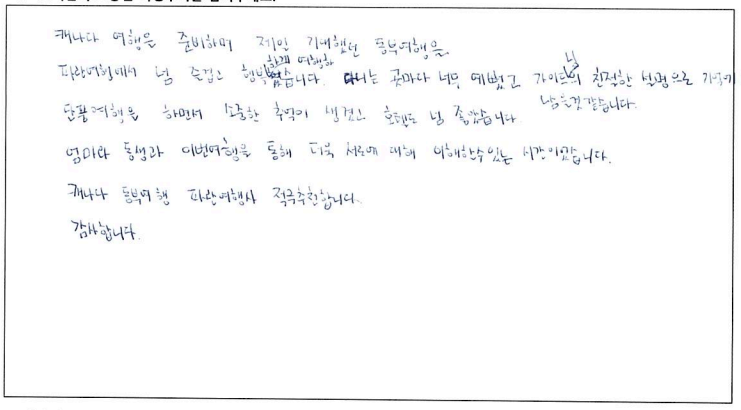 캐나다 여행을 준비하며 제일 기대했던 동부여행을
파란여행에서 넘 즐겁고 행복하게 여행하였습니다. 다니는 곳마다 너무 예뻤고 가이드님의 친절한 설명으로 기억에 남을것 같습니다.
단풍여행을 하면서 소중한 추억이 생겼고 호텔도 넘 좋았습니다
엄마와 동생과 이번여행을 통해 더욱 서로에 대해 이해할수있는 시간이었습니다.
캐나다 동부여행 파란여행사 적극추천합니다.
감사합니다.